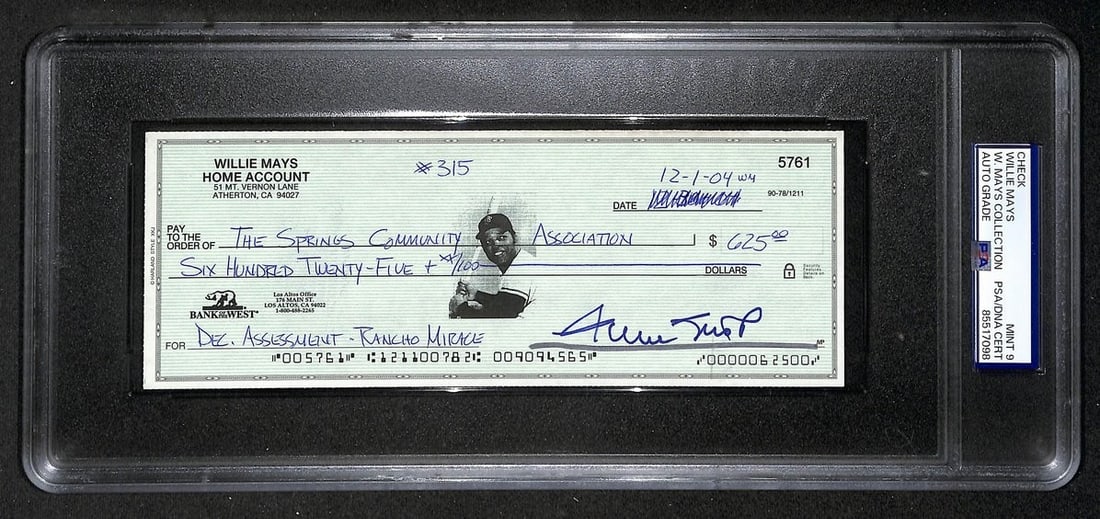 WILLIE MAYS
HOME ACCOUNT
51 MT. VERNON LANE
ATHERTON, CA 94027
#315
5761
12-1-04 WM
90-78/1211
DATE
PAY
TO THE
ORDER OF THE SPRINGS COMMUNITY ASSOCIATION $ 625.00
SIX HUNDRED TWENTY-FIVE + XX/100 DOLLARS
Security
Features
Details on
Back
BANK OF THE WEST
Los Altos Office
176 MAIN ST.
LOS ALTOS, CA 94022
1-800-488-2265
FOR DEC. ASSESSMENT - RANCHO MIRAGE Willie Mays
MP
⑈005761⑈ ⑆121100782⑆ 009094565⑈ ⑇0000062500⑇
© HARLAND STYLE XKJ
CHECK
WILLIE MAYS MINT 9
W. MAYS COLLECTION PSA/DNA CERT
AUTO GRADE 85517098
PSA